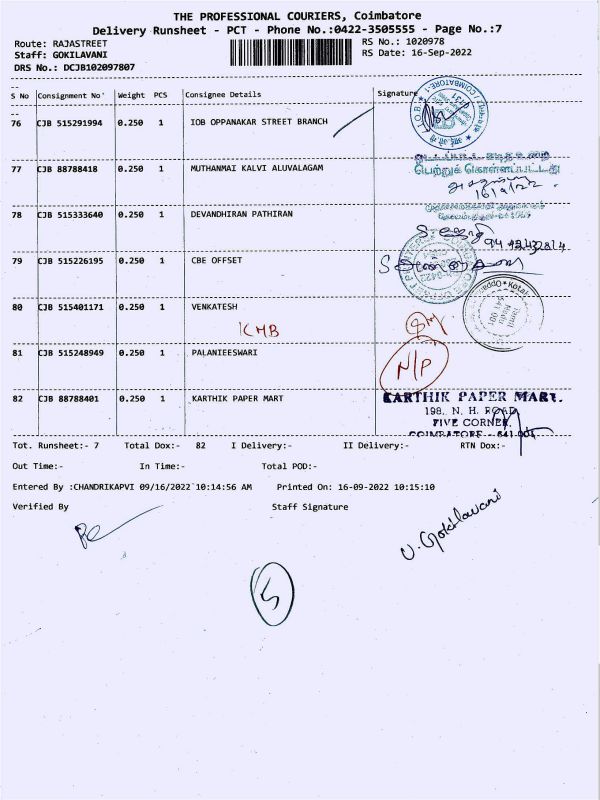 THE PROFESSIONAL COURIERS, Coimbatore
Delivery Runsheet - PCT - Phone No.:0422-3505555 - Page No.:7
Route: RAJASTREET
RS No.: 1020978
Staff: GOKILAVANI
RS Date: 16-Sep-2022
DRS No.: DCJB102097807
S No Consignment No' Weight PCS Consignee Details Signature
76 CJB 515291994 0.250 1 IOB OPPANAKAR STREET BRANCH
77 CJB 88788418 0.250 1 MUTHANMAI KALVI ALUVALAGAM
பெற்றுக் கொள்ளப்பட்டது
16/9/22
78 CJB 515333640 0.250 1 DEVANDHIRAN PATHIRAN
79 CJB 515226195 0.250 1 CBE OFFSET
80 CJB 515401171 0.250 1 VENKATESH
KMB
81 CJB 515248949 0.250 1 PALANIEESWARI
N/P
82 CJB 88788401 0.250 1 KARTHIK PAPER MART
KARTHIK PAPER MART.
198, N. H. ROAD
FIVE CORNER,
COIMBATORE - 641 001
Tot. Runsheet:- 7 Total Dox:- 82 I Delivery:- II Delivery:- RTN Dox:-
Out Time:- In Time:- Total POD:-
Entered By :CHANDRIKAPVI 09/16/2022 10:14:56 AM Printed On: 16-09-2022 10:15:10
Verified By Staff Signature
V. Gokilavani
5